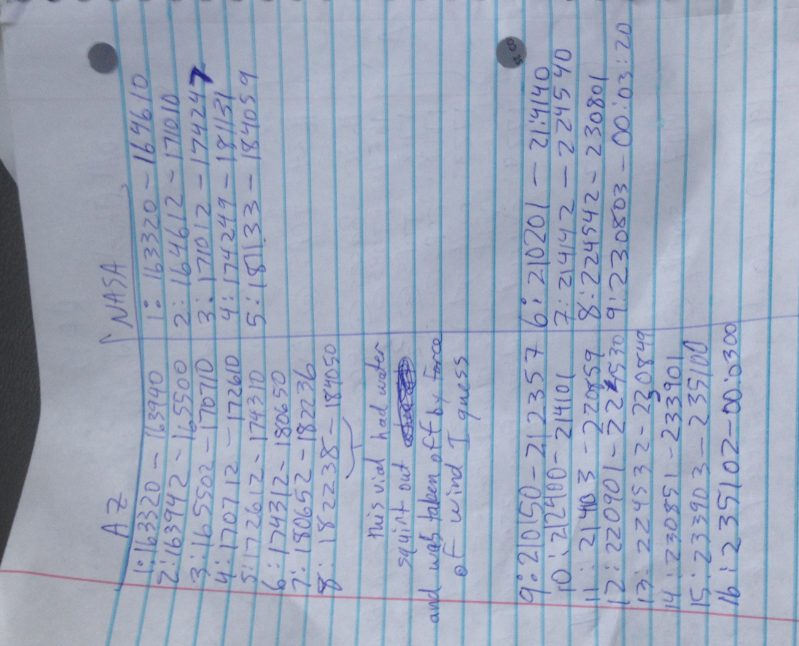 AZ
1: 163320 - 163940
2: 163942 - 165500
3: 165502 - 170710
4: 170712 - 172610
5: 172612 - 174310
6: 174312 - 180650
7: 180652 - 182236
8: 182238 - 184050
This vial had water
squirt out
and was taken off by force
of wind I guess
9: 210150 - 212357
10: 212400 - 214101
11: 214103 - 220859
12: 220901 - 224530
13: 224532 - 230849
14: 230851 - 233901
15: 233903 - 235100
16: 235102 - 00:0300
NASA
1: 163320 - 164610
2: 164612 - 171010
3. 171012 - 174247
4: 174249 - 181131
5: 181133 - 184059
6: 210201 - 21:4140
7: 214142 - 224540
8: 224542 - 230801
9: 230803 - 00:03:20